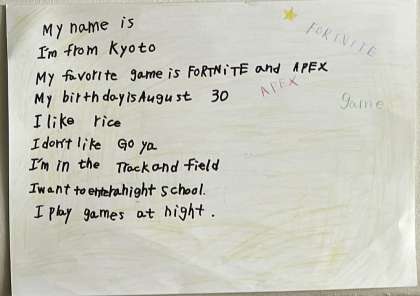 My name is
I'm from Kyoto
My favorite game is FORTNiTE and APEX
My birthday is August 30
I like rice
I don't like Go ya
I'm in the Track and field
I want to enter a hight School.
I play games at night.
FORTNITE
APEX
game